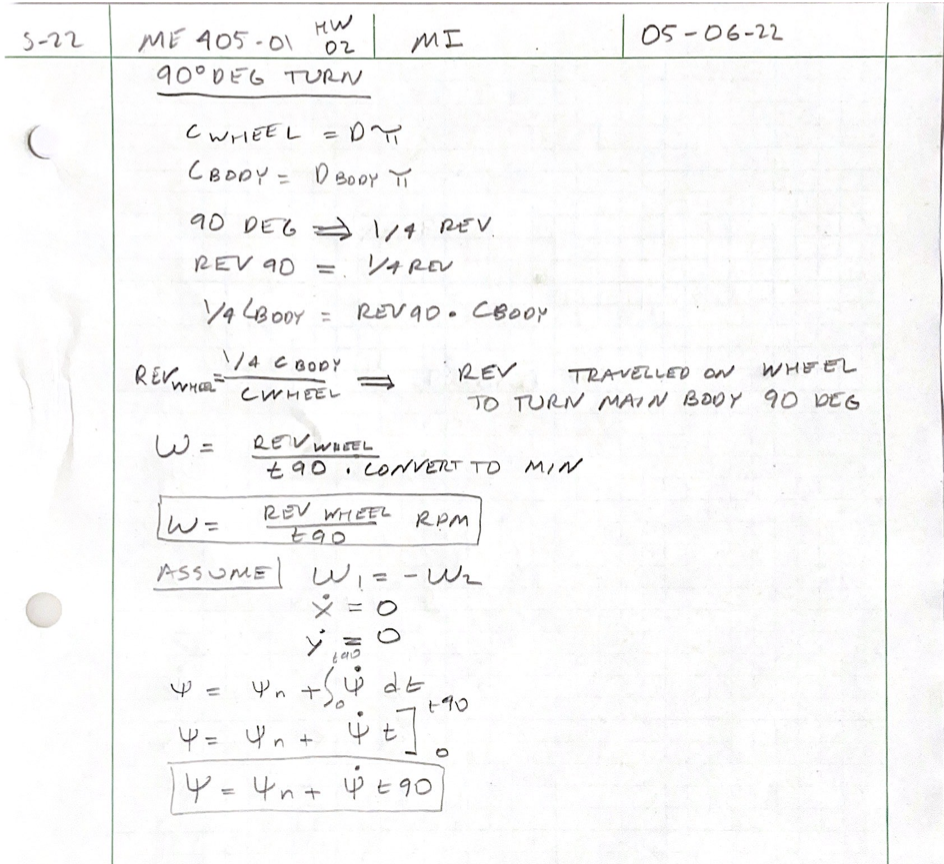 S-22 ME 405-01 HW 02 MI 05-06-22
90° DEG TURN
C WHEEL = D π
C BODY = D BODY π
90 DEG ⇒ 1/4 REV.
REV 90 = 1/4 REV
1/4 C BODY = REV 90 • C BODY
REV WHEEL = 1/4 C BODY / C WHEEL ⇒ REV TRAVELLED ON WHEEL
TO TURN MAIN BODY 90 DEG
W = REV WHEEL / t90 . CONVERT TO MIN
W = REV WHEEL / t90 RPM
ASSUME W1 = -W2
ẋ = 0
ẏ = 0
ψ = ψn + ∫0^t90 ψ̇ dt
ψ = ψn + ψ̇ t ]0^t90
ψ = ψn + ψ̇ t90